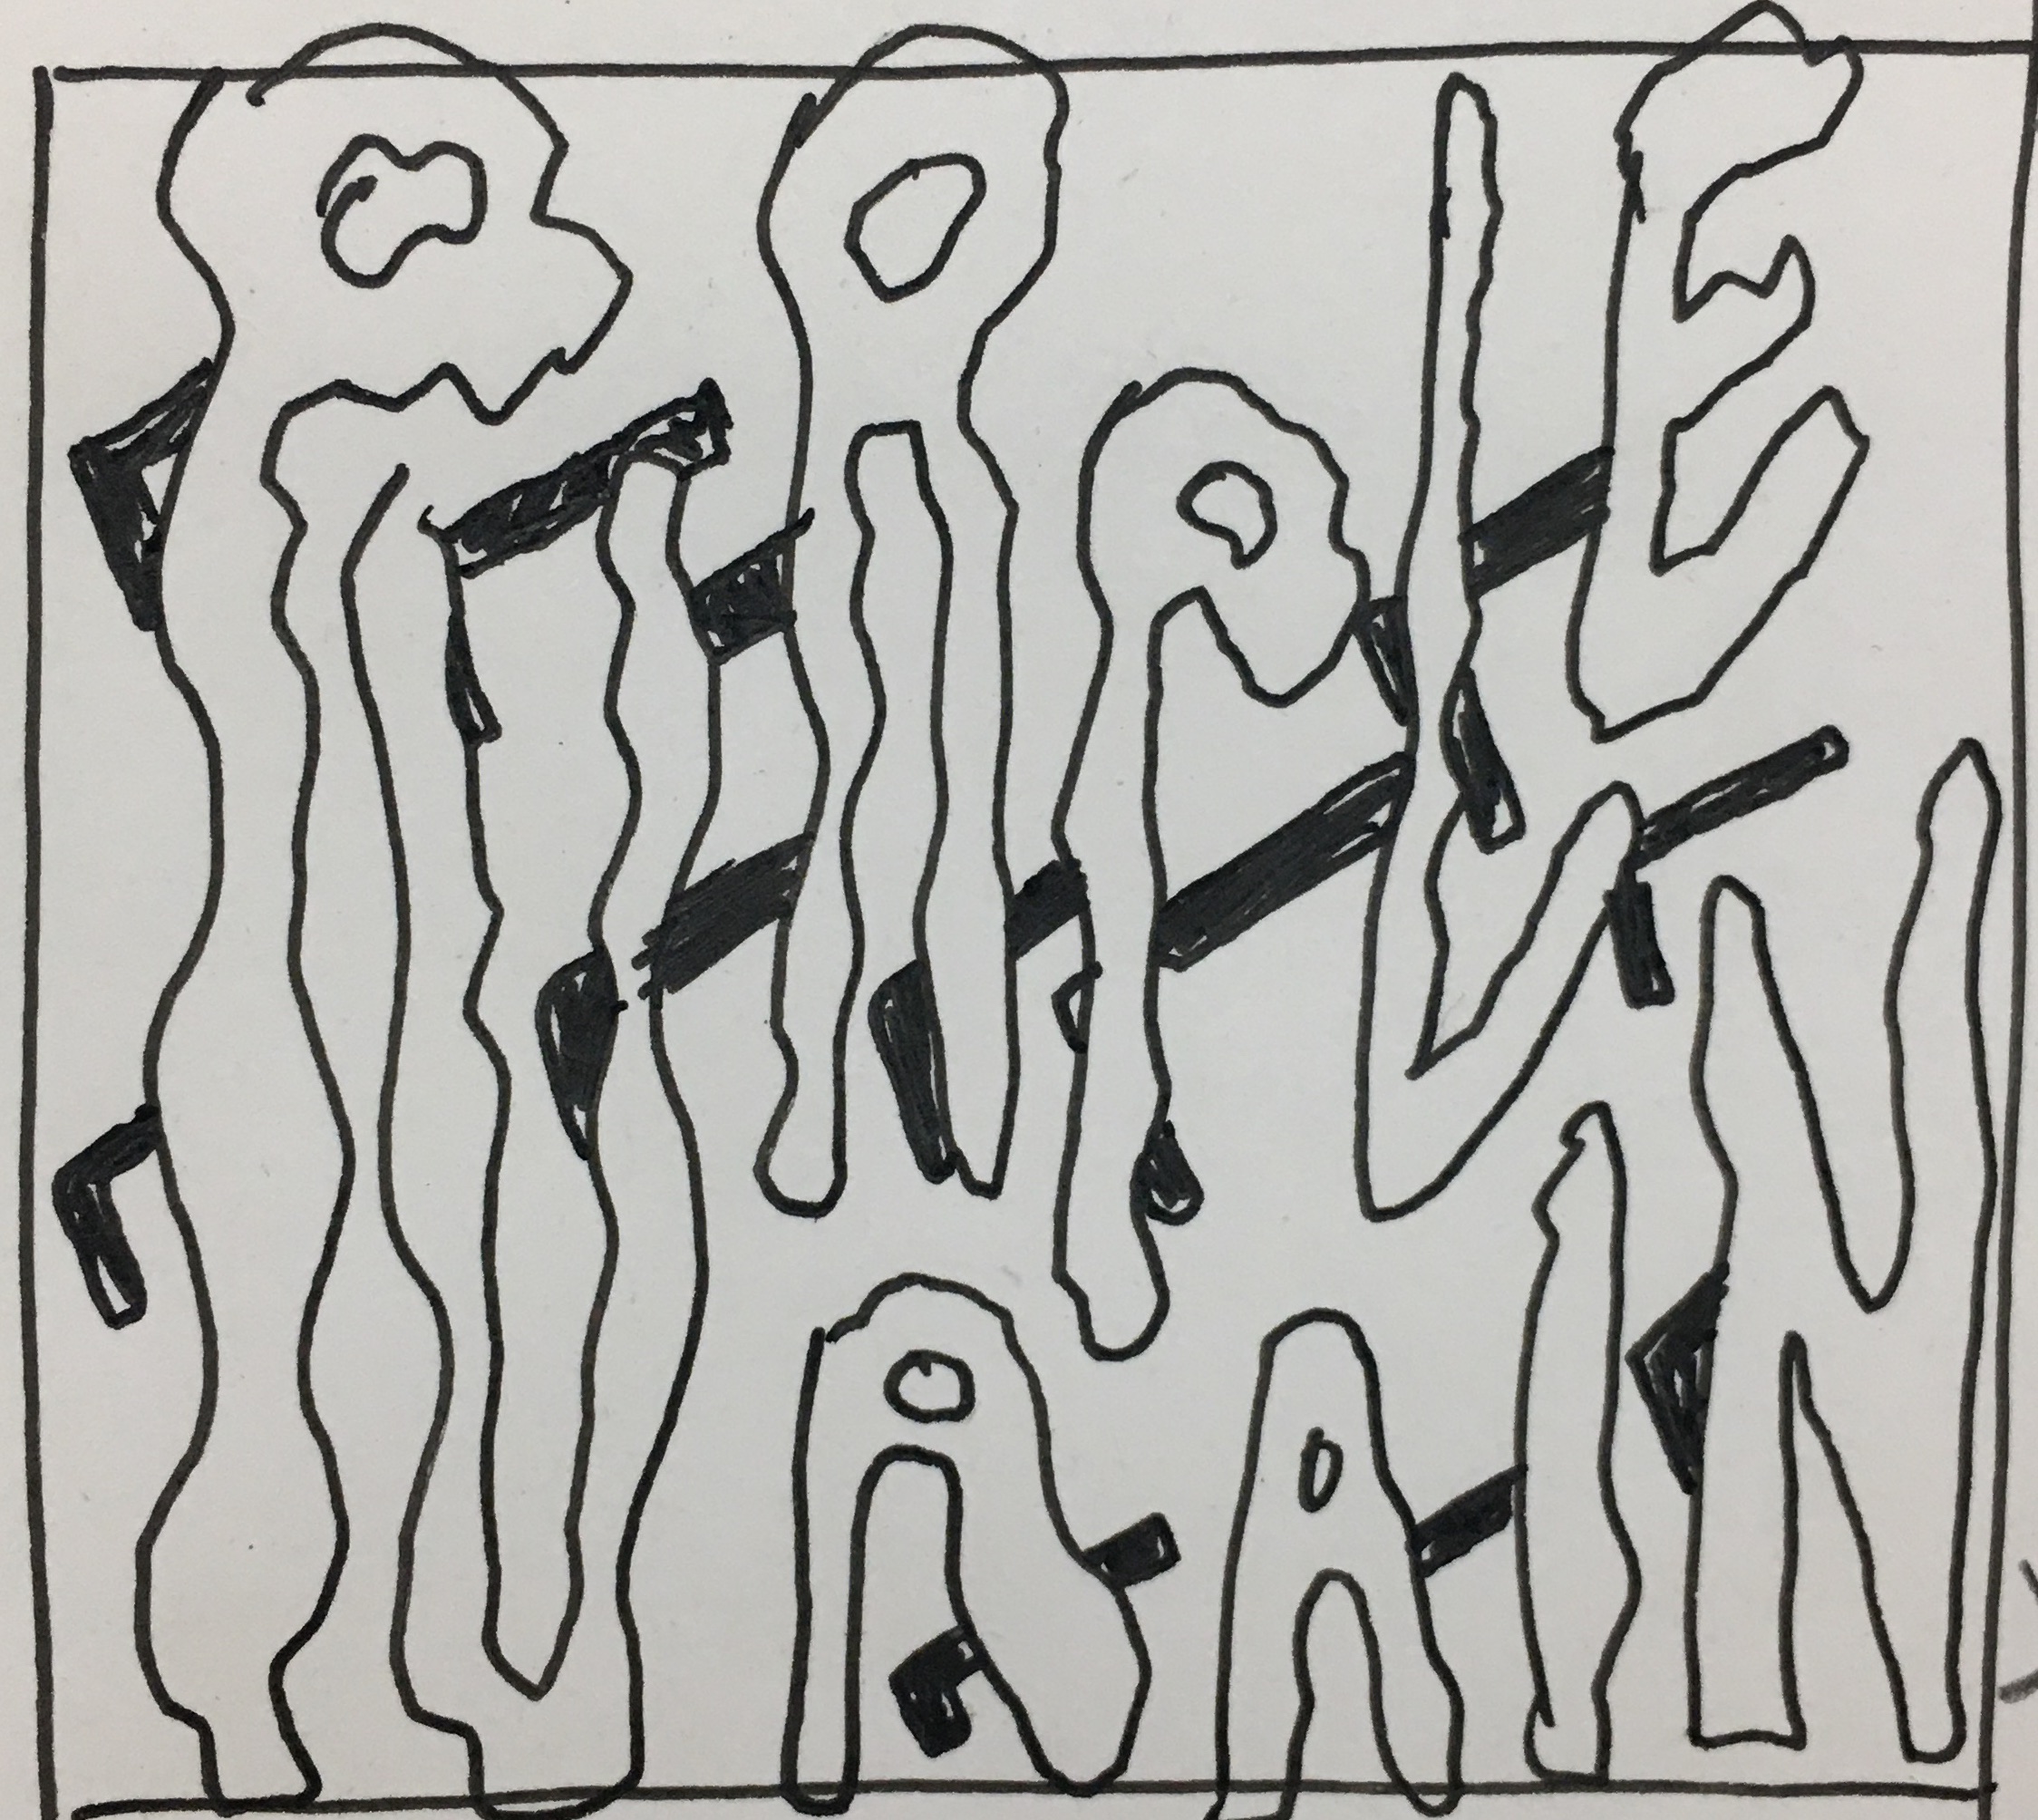 PURPLE
RAIN